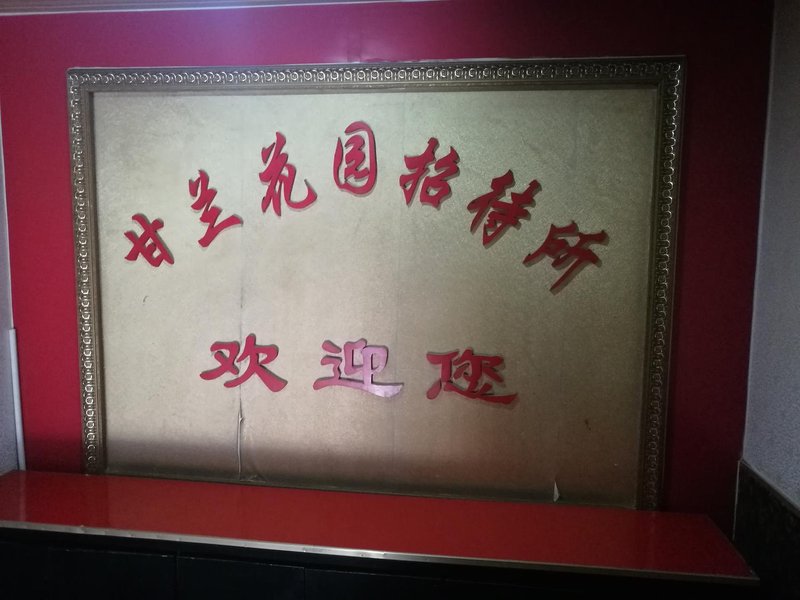 甘兰花园招待所
欢迎您